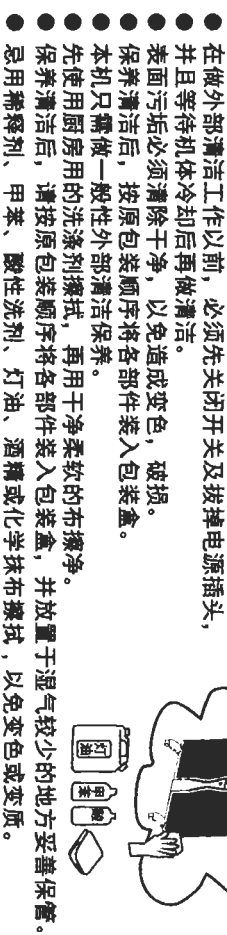 ● 在做外部清洁工作以前，必须先关闭开关及拔掉电源插头，
● 并且等待机体冷却后再做清洁。
● 表面污垢必须清除干净，以免造成变色，破损。
● 保养清洁后，按原包装顺序将各部件装入包装盒。
● 本机只需做一般性外部清洁保养。
● 先使用厨房用的洗涤剂擦拭，再用干净柔软的布擦净。
● 保养清洁后，请按原包装顺序将各部件装入包装盒，并放置于湿气较少的地方妥善保管。
● 忌用稀释剂、甲苯、酸性洗剂、灯油、酒精或化学抹布擦拭，以免变色或变质。
灯油
甲苯
酸